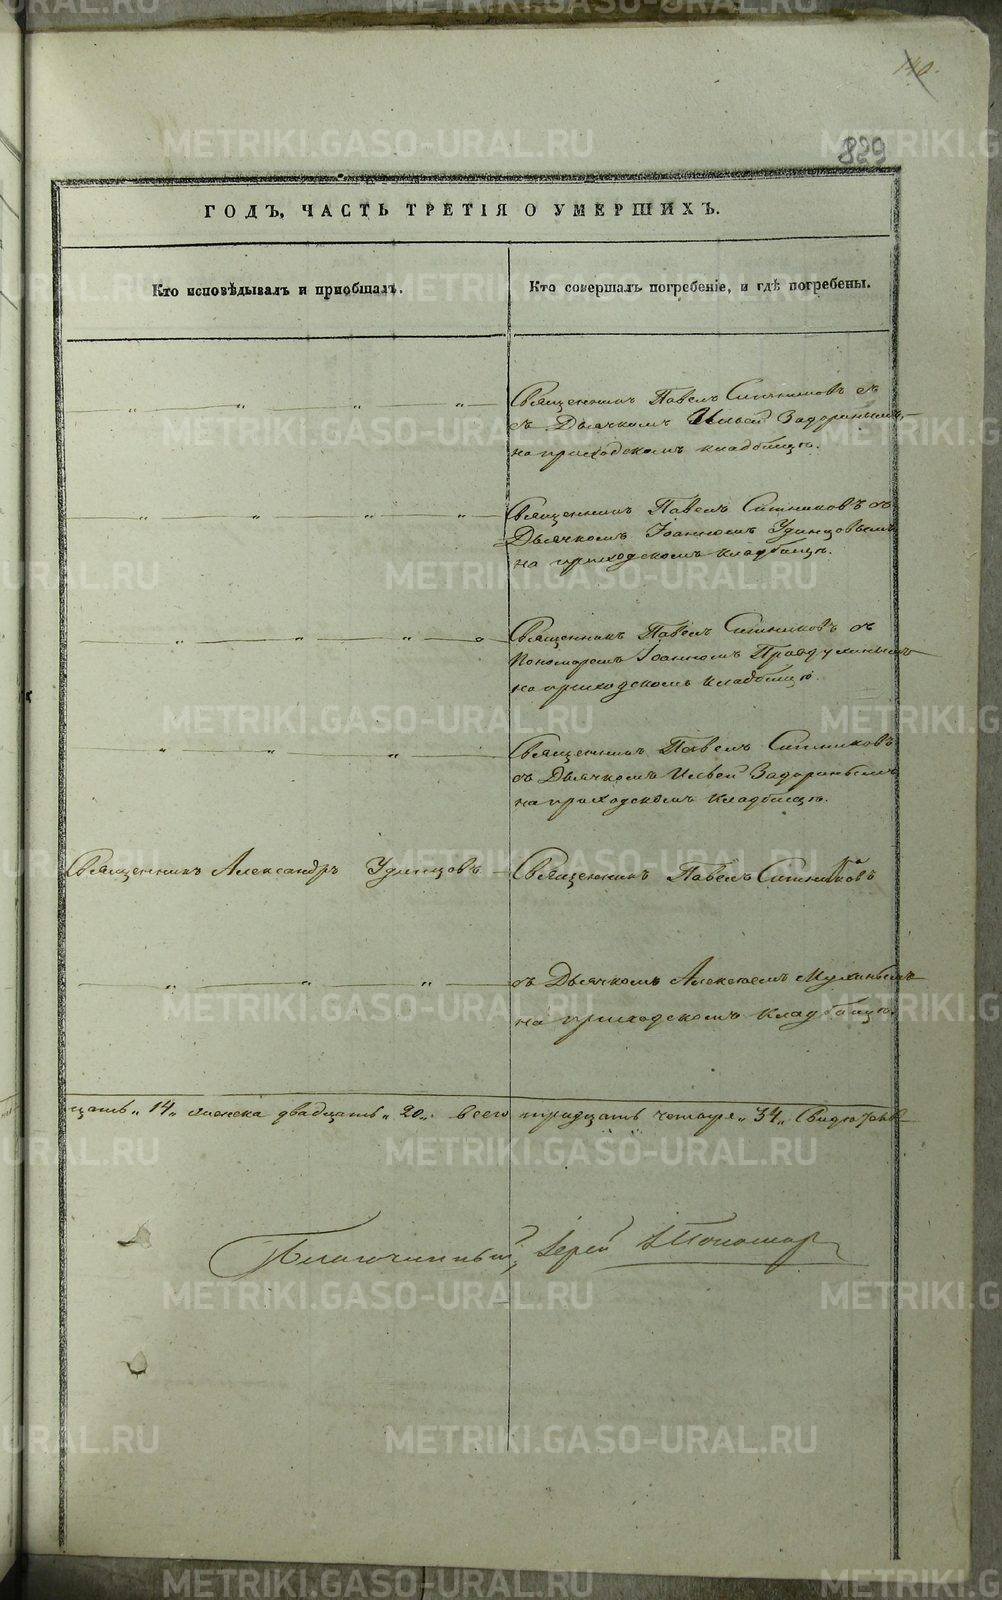 140.
829
ГОДЪ, ЧАСТЬ ТРЕТІЯ О УМЕРШИХЪ.
Кто исповѣдывалъ и пріобщалъ.
Кто совершалъ погребеніе, и гдѣ погребены.
Священникъ Павелъ Ситниковъ съ
съ Дьячкомъ Ильей Задоринымъ,
на приходскомъ кладбищѣ.
Священникъ Павелъ Ситниковъ съ
Дьячкомъ Іоанномъ Удинцовымъ
на приходскомъ кладбищѣ.
Священникъ Павелъ Ситниковъ съ
Пономаремъ Іоанномъ
на приходскомъ кладбищѣ.
Священникъ Павелъ Ситниковъ
съ Дьячкомъ Ильей Задоринымъ
на приходскомъ кладбищѣ.
Священникъ Александръ Удинцовъ
Священникъ Павелъ Ситниковъ
съ Дьячкомъ Алексѣемъ Мухинымъ
на приходскомъ кладбищѣ.
цать „14„ женска двадцать „20„ всего тридцать четыре „34„
Благочинный, Іерей
METRIKI.GASO-URAL.RU